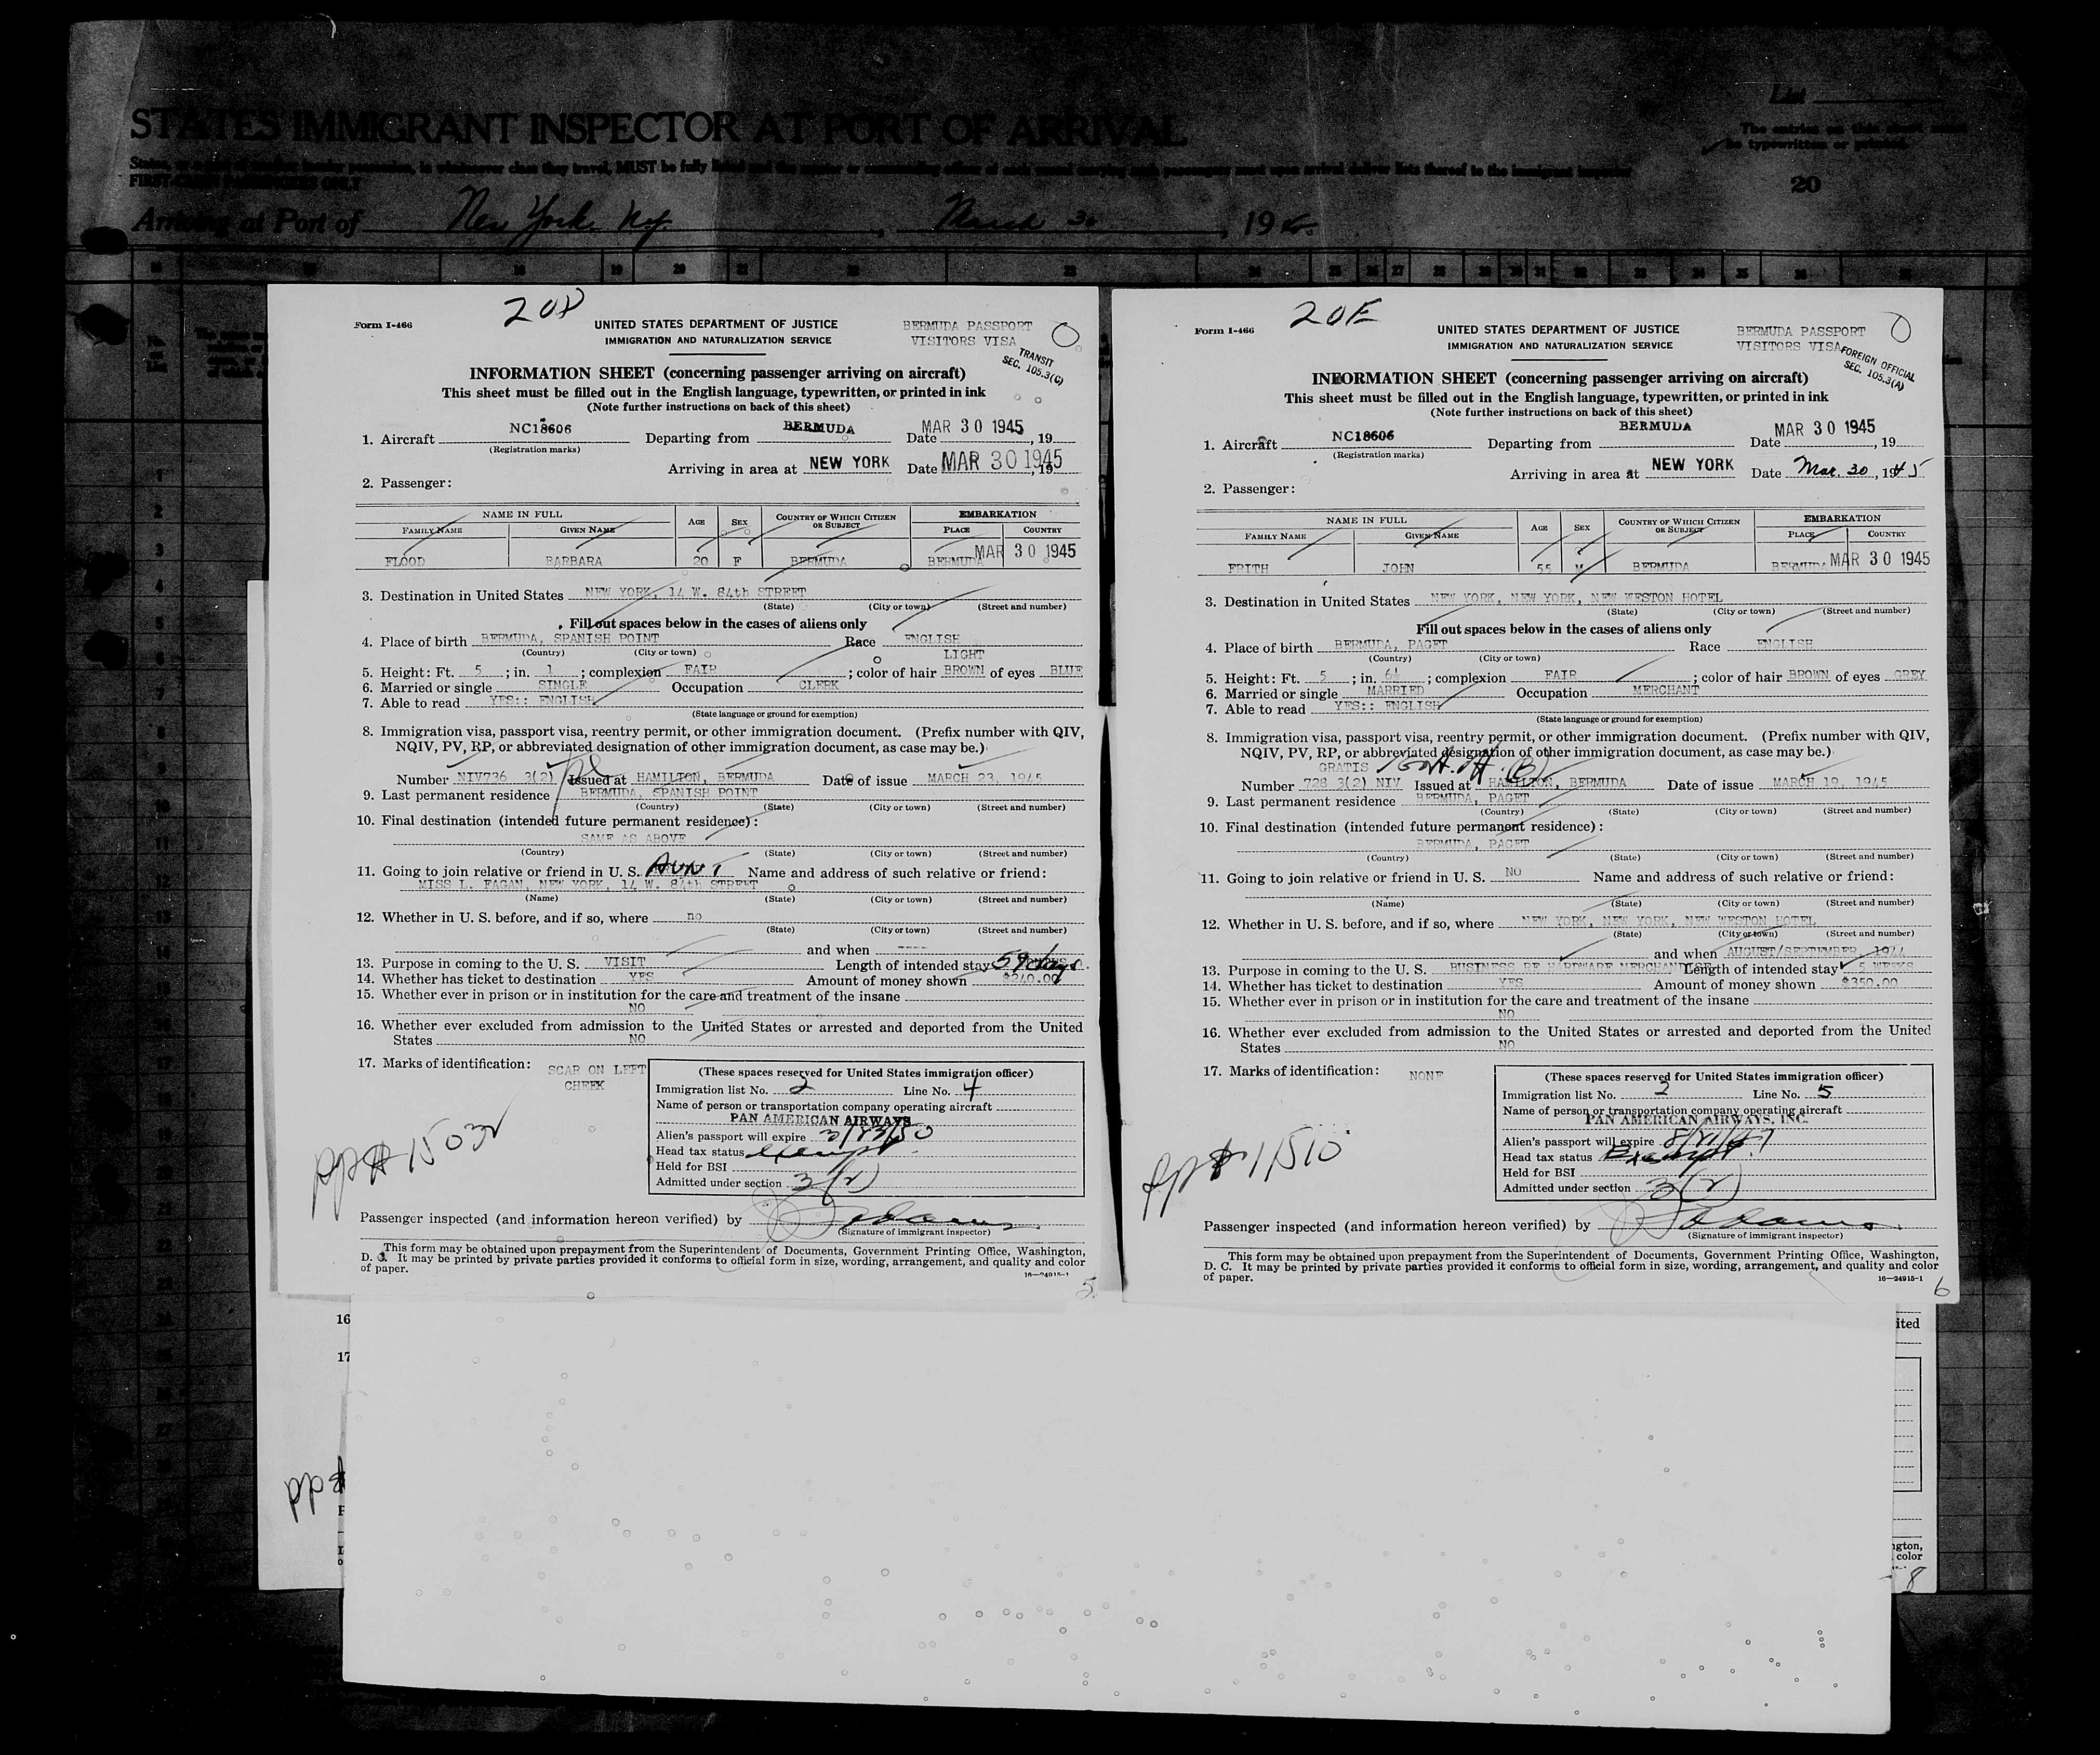 STATES IMMIGRANT INSPECTOR AT PORT OF ARRIVAL
List
The entries on this sheet must
be typewritten or printed.
FIRST-CABIN PASSENGERS ONLY
20
Arriving at Port of New York, N.Y., March 30, 19
20D
Form I-466
UNITED STATES DEPARTMENT OF JUSTICE
IMMIGRATION AND NATURALIZATION SERVICE
BERMUDA PASSPORT
VISITORS VISA
TRANSIT
SEC. 105.3(C)
INFORMATION SHEET (concerning passenger arriving on aircraft)
This sheet must be filled out in the English language, typewritten, or printed in ink
(Note further instructions on back of this sheet)
1. Aircraft NC18606 Departing from BERMUDA Date MAR 30 1945, 19
(Registration marks)
Arriving in area at NEW YORK Date MAR 30 1945, 19
2. Passenger:
NAME IN FULL AGE SEX COUNTRY OF WHICH CITIZEN OR SUBJECT EMBARKATION
FAMILY NAME GIVEN NAME PLACE COUNTRY
FLOOD BARBARA 20 F BERMUDA BERMUDA MAR 30 1945
3. Destination in United States NEW YORK, 14 W. 84th STREET
(State) (City or town) (Street and number)
Fill out spaces below in the cases of aliens only
4. Place of birth BERMUDA, SPANISH POINT Race ENGLISH
(Country) (City or town) LIGHT
5. Height: Ft. 5; in. 1; complexion FAIR; color of hair BROWN of eyes BLUE
6. Married or single SINGLE Occupation CLERK
7. Able to read YES:: ENGLISH
(State language or ground for exemption)
8. Immigration visa, passport visa, reentry permit, or other immigration document. (Prefix number with QIV,
NQIV, PV, RP, or abbreviated designation of other immigration document, as case may be.)
Number NIV736 3(2) Issued at HAMILTON, BERMUDA Date of issue MARCH 23, 1945
9. Last permanent residence BERMUDA, SPANISH POINT
(Country) (State) (City or town) (Street and number)
10. Final destination (intended future permanent residence):
SAME AS ABOVE
(Country) (State) (City or town) (Street and number)
11. Going to join relative or friend in U. S. AUNT Name and address of such relative or friend:
MISS L. FAGAN, NEW YORK, 14 W. 84th STREET
(Name) (State) (City or town) (Street and number)
12. Whether in U. S. before, and if so, where no
(State) (City or town) (Street and number)
and when ----
13. Purpose in coming to the U. S. VISIT Length of intended stay 59 days.
14. Whether has ticket to destination YES Amount of money shown $240.00
15. Whether ever in prison or in institution for the care and treatment of the insane
NO
16. Whether ever excluded from admission to the United States or arrested and deported from the United
States NO
17. Marks of identification: SCAR ON LEFT
CHEEK
(These spaces reserved for United States immigration officer)
Immigration list No. 2 Line No. 4
Name of person or transportation company operating aircraft
PAN AMERICAN AIRWAYS
Alien's passport will expire 3/23/50
Head tax status exempt
Held for BSI
Admitted under section 3(2)
Passenger inspected (and information hereon verified) by Adams
(Signature of immigrant inspector)
This form may be obtained upon prepayment from the Superintendent of Documents, Government Printing Office, Washington,
D. C. It may be printed by private parties provided it conforms to official form in size, wording, arrangement, and quality and color
of paper.
16—24915-1
5
20E
Form I-466
UNITED STATES DEPARTMENT OF JUSTICE
IMMIGRATION AND NATURALIZATION SERVICE
BERMUDA PASSPORT
VISITORS VISA
FOREIGN OFFICIAL
SEC. 105.3(A)
INFORMATION SHEET (concerning passenger arriving on aircraft)
This sheet must be filled out in the English language, typewritten, or printed in ink
(Note further instructions on back of this sheet)
1. Aircraft NC18606 Departing from BERMUDA Date MAR 30 1945, 19
(Registration marks)
Arriving in area at NEW YORK Date Mar. 30, 1945
2. Passenger:
NAME IN FULL AGE SEX COUNTRY OF WHICH CITIZEN OR SUBJECT EMBARKATION
FAMILY NAME GIVEN NAME PLACE COUNTRY
FRITH JOHN 55 M BERMUDA BERMUDA MAR 30 1945
3. Destination in United States NEW YORK, NEW YORK, NEW WESTON HOTEL
(State) (City or town) (Street and number)
Fill out spaces below in the cases of aliens only
4. Place of birth BERMUDA, PAGET Race ENGLISH
(Country) (City or town)
5. Height: Ft. 5; in. 6½; complexion FAIR; color of hair BROWN of eyes GREY
6. Married or single MARRIED Occupation MERCHANT
7. Able to read YES:: ENGLISH
(State language or ground for exemption)
8. Immigration visa, passport visa, reentry permit, or other immigration document. (Prefix number with QIV,
NQIV, PV, RP, or abbreviated designation of other immigration document, as case may be.)
GRATIS
Number 728 3(2) NIV Issued at HAMILTON, BERMUDA Date of issue MARCH 19, 1945
9. Last permanent residence BERMUDA, PAGET
(Country) (State) (City or town) (Street and number)
10. Final destination (intended future permanent residence):
BERMUDA, PAGET
(Country) (State) (City or town) (Street and number)
11. Going to join relative or friend in U. S. NO Name and address of such relative or friend:
(Name) (State) (City or town) (Street and number)
12. Whether in U. S. before, and if so, where NEW YORK, NEW YORK, NEW WESTON HOTEL
(State) (City or town) (Street and number)
and when AUGUST/SEPTEMBER 1944
13. Purpose in coming to the U. S. BUSINESS RE HARDWARE Length of intended stay 5 WEEKS
14. Whether has ticket to destination YES Amount of money shown $350.00
15. Whether ever in prison or in institution for the care and treatment of the insane
NO
16. Whether ever excluded from admission to the United States or arrested and deported from the United
States NO
17. Marks of identification: NONE
(These spaces reserved for United States immigration officer)
Immigration list No. 2 Line No. 5
Name of person or transportation company operating aircraft
PAN AMERICAN AIRWAYS, INC.
Alien's passport will expire 8/21/47
Head tax status Exempt
Held for BSI
Admitted under section 3(2)
pp# 11510
Passenger inspected (and information hereon verified) by Adams
(Signature of immigrant inspector)
This form may be obtained upon prepayment from the Superintendent of Documents, Government Printing Office, Washington,
D. C. It may be printed by private parties provided it conforms to official form in size, wording, arrangement, and quality and color
of paper.
16—24915-1
6
16
17
ited
ngton,
color
8